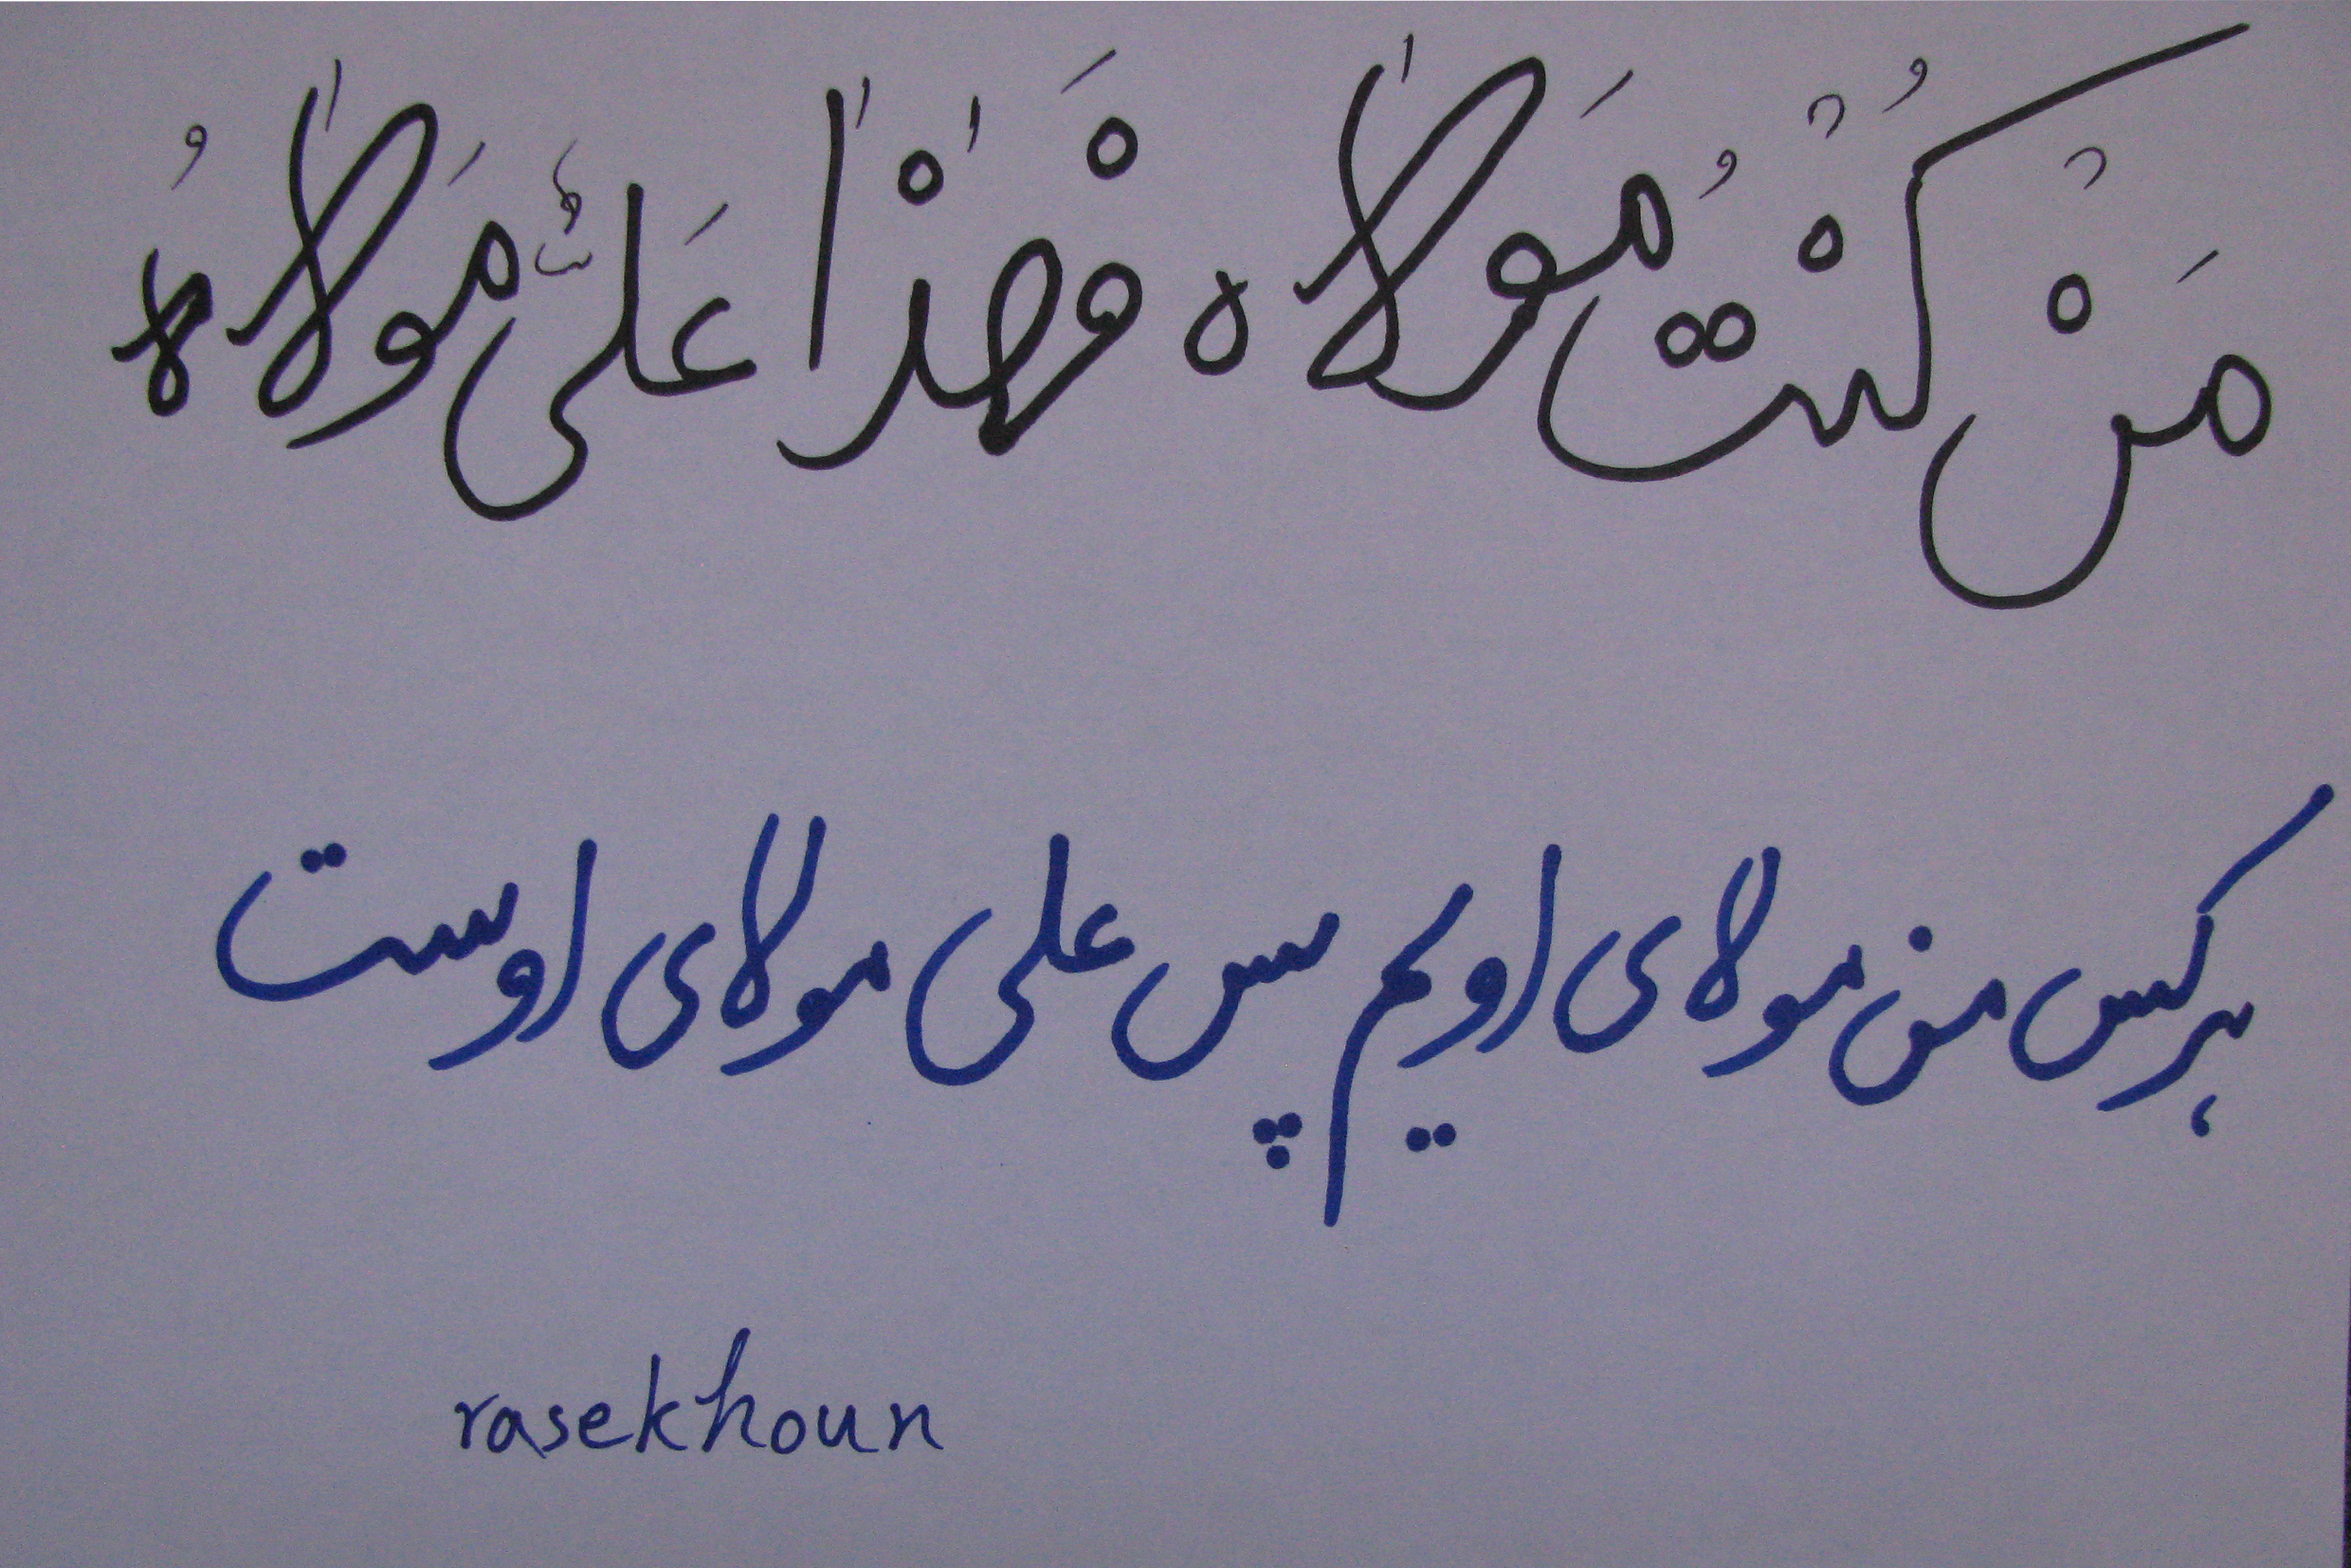 مَنْ كُنْتُ مَولاه فَهٰذا عَلىٌّ مَولاهُ
هرکس من مولای اویم پس علی مولای اوست
rasekhoun